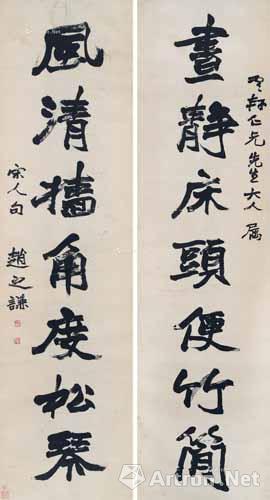 仁兄先生大人属
晝静床頭便竹簡
風清牆角度松琴
宋人句
趙之謙
Artron.Net